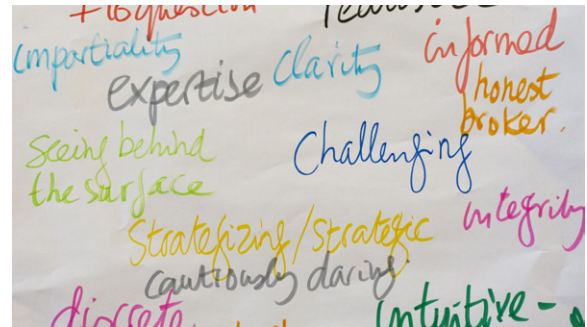 impartiality
expertise
clarity
informed
honest
broker.
seeing behind
the surface
Challenging
integrity
Strategizing/strategic
cautiously daring
discrete
intuitive -